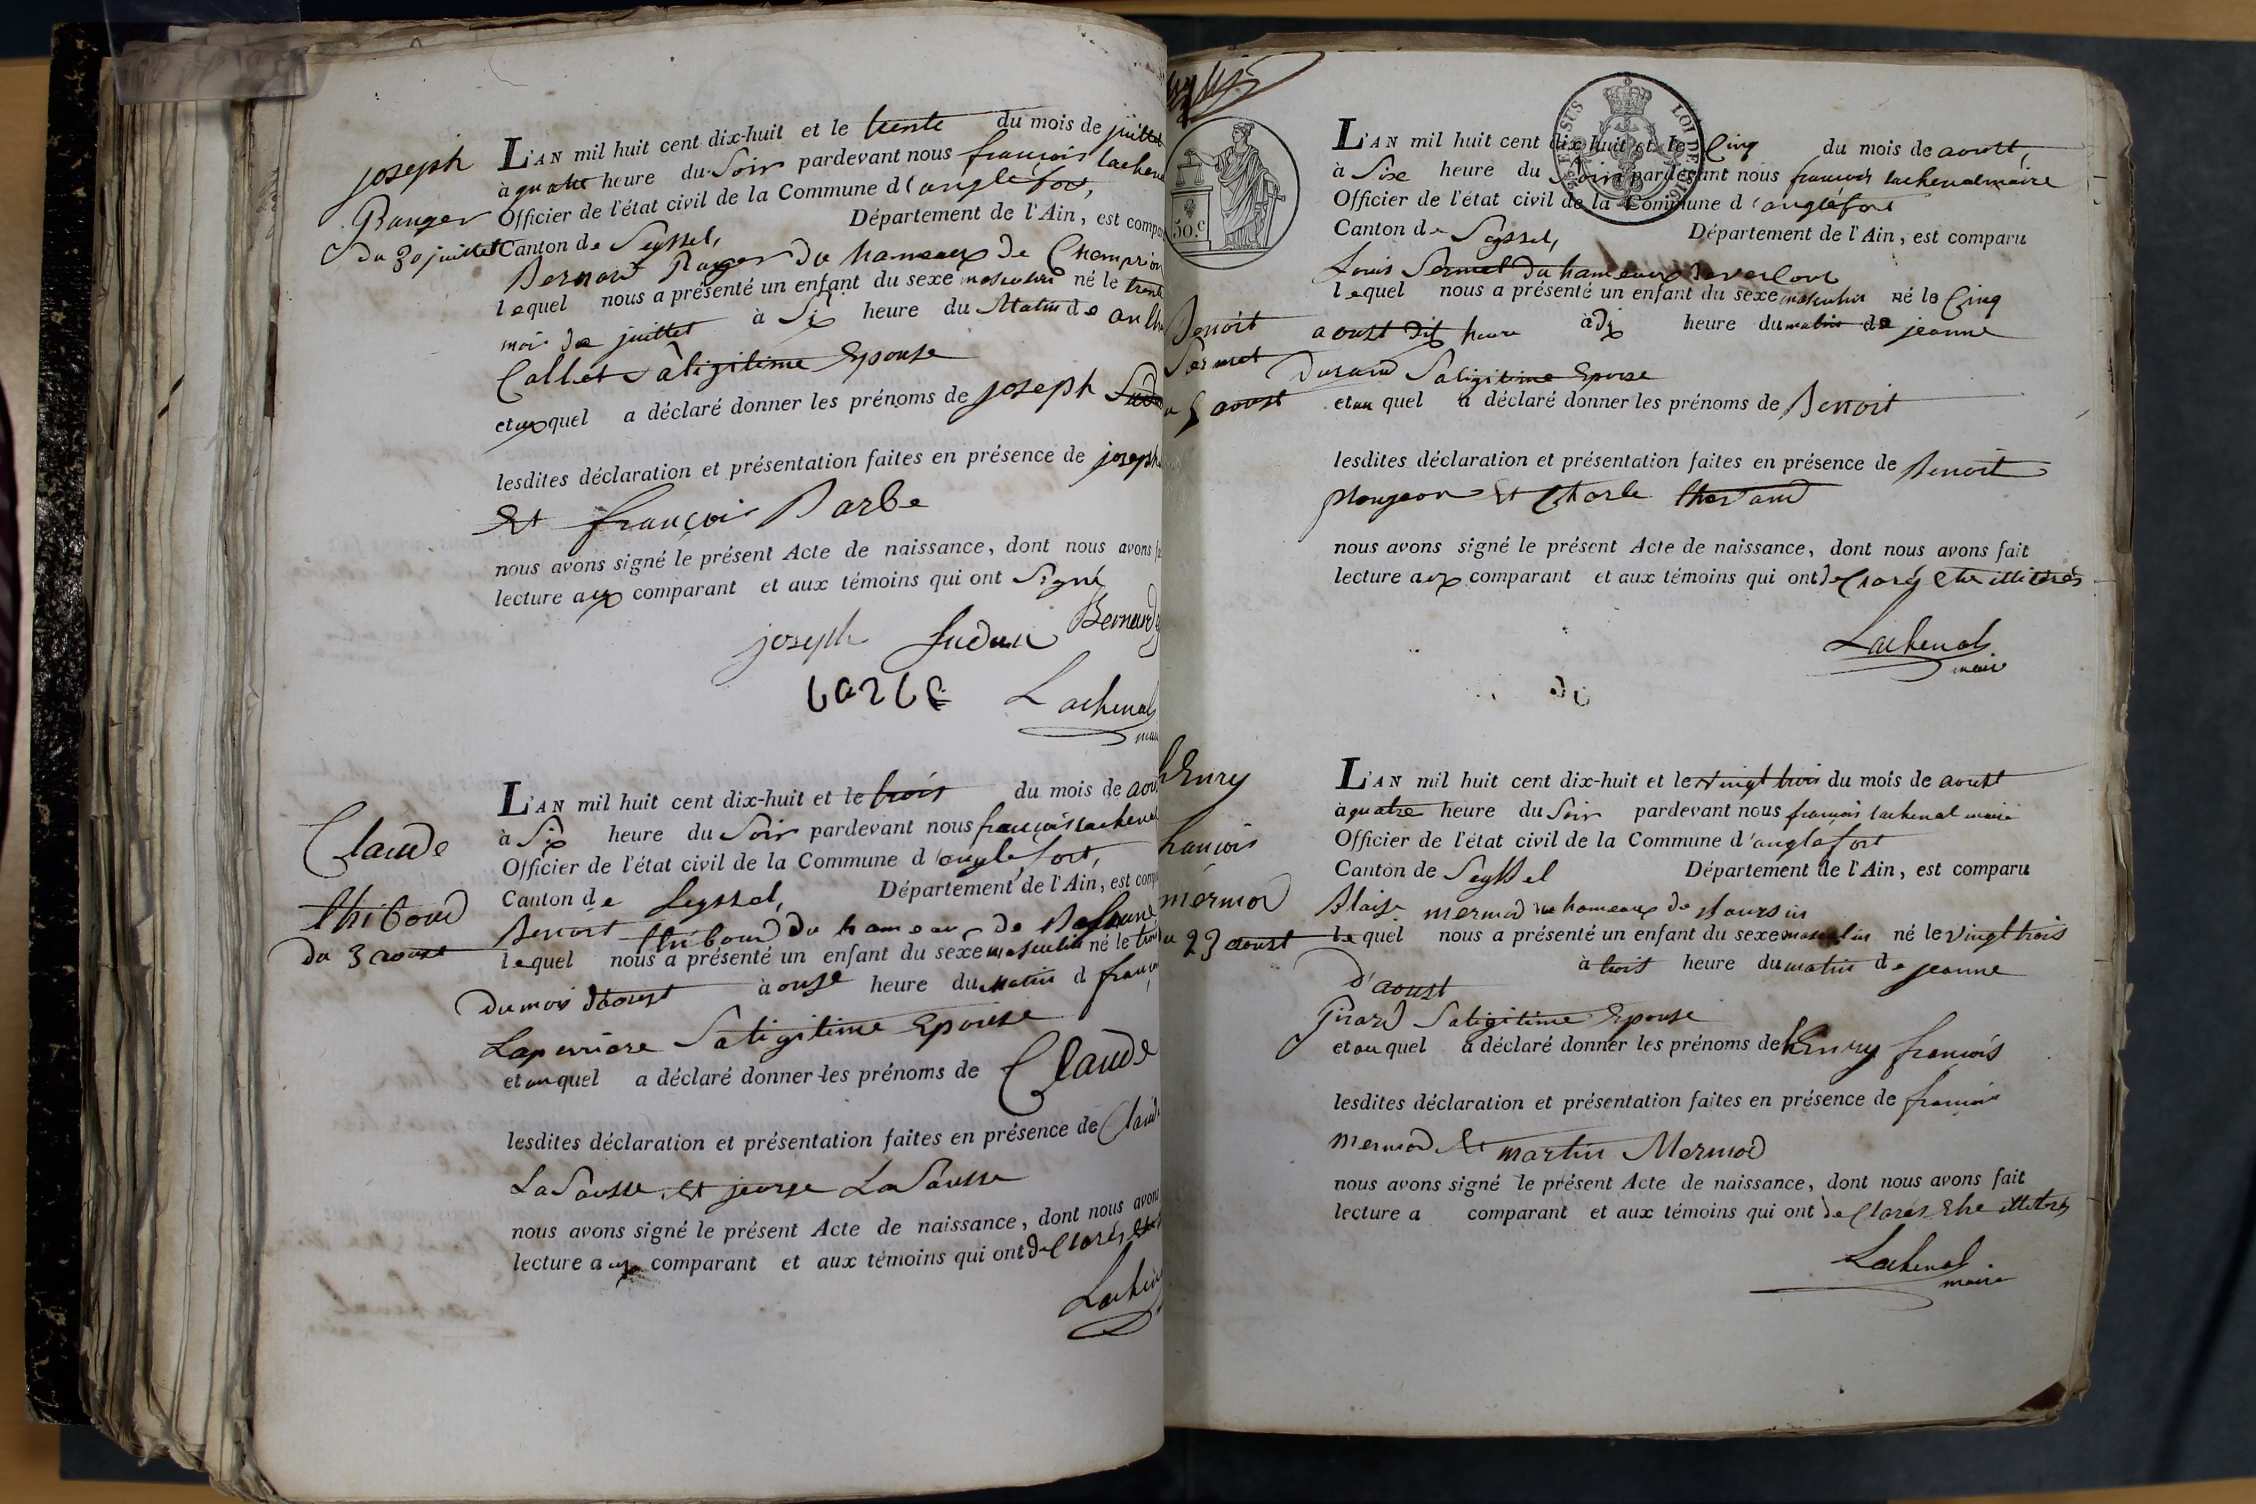 joseph
Ranger
du 30 juillet
L'AN mil huit cent dix-huit et le trente du mois de juillet
à quatre heure du Soir pardevant nous françois lachena
Officier de l'état civil de la Commune d'anglefort,
Canton de Seyssel, Département de l'Ain, est compa
Bernard Ranger du hameaux de
lequel nous a présenté un enfant du sexe masculin né le trente
mois de juillet à Six heure du Matin de
Callet Saligitime Epouse
et auquel a déclaré donner les prénoms de joseph
lesdites déclaration et présentation faites en présence de joseph
Et françois Barbe
nous avons signé le présent Acte de naissance, dont nous avons
lecture aux comparant et aux témoins qui ont Signé
joseph Sudan Bernard
barbe Lachenal
Claude
thiboud
du 3 aoust
L'AN mil huit cent dix-huit et le trois du mois de aou
à Six heure du Soir pardevant nous françois lachenal
Officier de l'état civil de la Commune d'anglefort,
Canton de Seyssel, Département de l'Ain, est comp
Benoit thiboud du hameau de
lequel nous a présenté un enfant du sexe masculin né le trois
du mois d'aoust à onze heure du Matin d
Laperriere Saligitime Epouse
et auquel a déclaré donner les prénoms de Claude
lesdites déclaration et présentation faites en présence de Claude
LaSausse Et jeorge LaSausse
nous avons signé le présent Acte de naissance, dont nous avons
lecture aux comparant et aux témoins qui ont declarés
Lachenal
LOI DE 1816
50.c
Benoit
Sermet
5 aoust
L'AN mil huit cent dix-huit et le Cinq du mois de aoust,
à Sixe heure du Soir pardevant nous françois lachenal maire
Officier de l'état civil de la Commune d'anglefort
Canton de Seyssel, Département de l'Ain, est comparu
Louis Sermet du hameaux
lequel nous a présenté un enfant du sexe masculin né le Cinq
aoust dix heure à dix heure du matin de jeanne
Durand Saligitime Epouse
et au quel a déclaré donner les prénoms de Benoit
lesdites déclaration et présentation faites en présence de Benoit
Mongeon Et Charle
nous avons signé le présent Acte de naissance, dont nous avons fait
lecture aux comparant et aux témoins qui ont declarés Etre illitérés
Lachenal
maire
hEnry
francois
mermod
23 aoust
L'AN mil huit cent dix-huit et le vingt trois du mois de aoust
à quatre heure du Soir pardevant nous françois lachenal maire
Officier de l'état civil de la Commune d'anglefort
Canton de Seyssel Département de l'Ain, est comparu
Blaise mermod du hameaux de
lequel nous a présenté un enfant du sexe masculin né le vingt trois
d'aoust à trois heure du matin de jeanne
Girard Saligitime Epouse
et au quel a déclaré donner les prénoms de hEnry francois
lesdites déclaration et présentation faites en présence de francois
mermod Et martin Mermod
nous avons signé le présent Acte de naissance, dont nous avons fait
lecture a comparant et aux témoins qui ont declarés Etre illitérés
Lachenal
maire